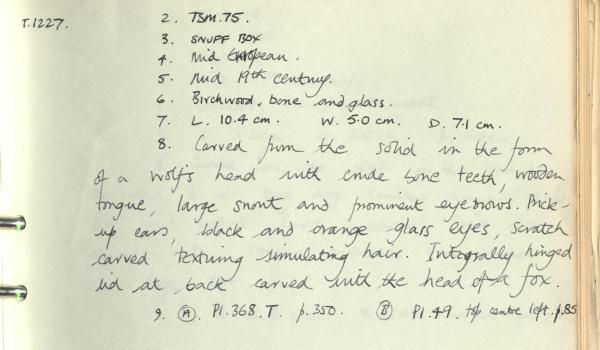 T.1227. 2. TSM.75.
3. SNUFF BOX
4. Mid European.
5. Mid 19th century.
6. Birchwood, bone and glass.
7. L. 10.4 cm. W. 5.0 cm. D. 7.1 cm.
8. Carved from the solid in the form
of a wolf's head with crude bone teeth, wooden
tongue, large snout and prominent eyebrows. Prick-
up ears, black and orange glass eyes, scratch
carved texturing simulating hair. Integrally hinged
lid at back carved with the head of a fox.
9. Ⓐ. Pl.368.T. p.350. Ⓑ Pl.49. top centre left. p.85